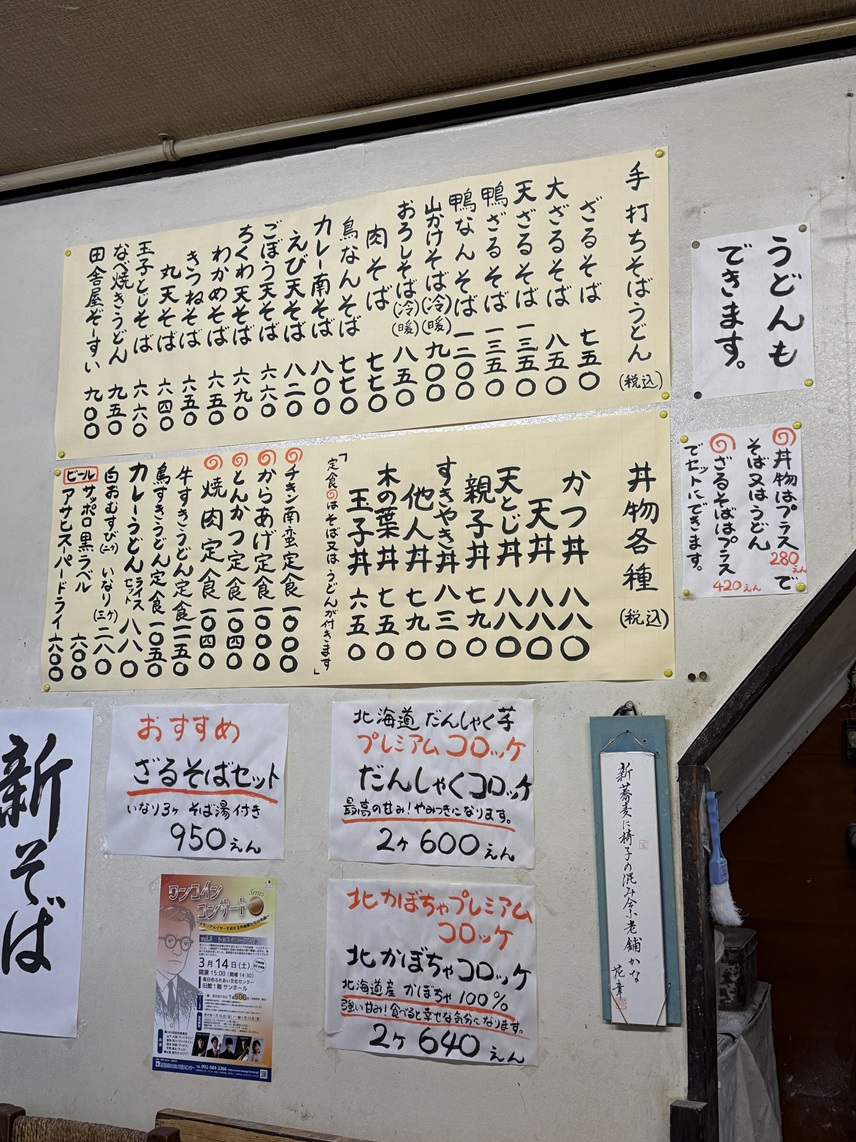 手打ちそばうどん(税込)
ざるそば 七五〇
大ざるそば 八五〇
天ざるそば 一三五〇
鴨ざるそば 一三五〇
鴨なんそば 一二〇〇
山かけそば(冷)(暖) 九〇〇
おろしそば(冷)(暖) 八五〇
肉そば 七七〇
鳥なんそば 七七〇
カレー南そば 八〇〇
えび天そば 八二〇
ごぼう天そば 六六〇
ちくわ天そば 六九〇
わかめそば 六五〇
きつねそば 六五〇
丸天そば 六四〇
玉子とじそば 六六〇
なべ焼きうどん 九五〇
田舎屋ぞーすい 九〇〇
うどんも
できます。
丼物各種(税込)
かつ丼 八八〇
天丼 八八〇
天とじ丼 八八〇
親子丼 七九〇
すきやき丼 八三〇
他人丼 七九〇
木の葉丼 七五〇
玉子丼 六五〇
「定食はそば又はうどんが付きます」
チキン南蛮定食 一〇〇〇
からあげ定食 一〇〇〇
とんかつ定食 一〇四〇
焼肉定食 一〇四〇
牛すきうどん定食 一一五〇
鳥すきうどん定食 一〇五〇
カレーうどんライスセット 八八〇
白おむすび(二ケ)いなり(三ケ) 二八〇
ビール
サッポロ黒ラベル 六〇〇
アサヒスーパードライ 六〇〇
丼物はプラス280えんで
そば又はうどん
ざるそばはプラス420えん
でセットにできます。
新そば
おすすめ
ざるそばセット
いなり3ヶ そば湯付き
950えん
北海道 だんしゃく芋
プレミアム コロッケ
だんしゃくコロッケ
最高の甘み!やみつきになります。
2ヶ 600えん
北かぼちゃプレミアム
コロッケ
北かぼちゃコロッケ
北海道産 かぼちゃ 100%
強い甘み!食べると幸せな気分になります。
2ヶ 640えん
新蕎麦に椅子の混み合ふ老舗かな
ワンコイン
コンサート
Series
3月14日(土)
開演 15:00(開場 14:30)